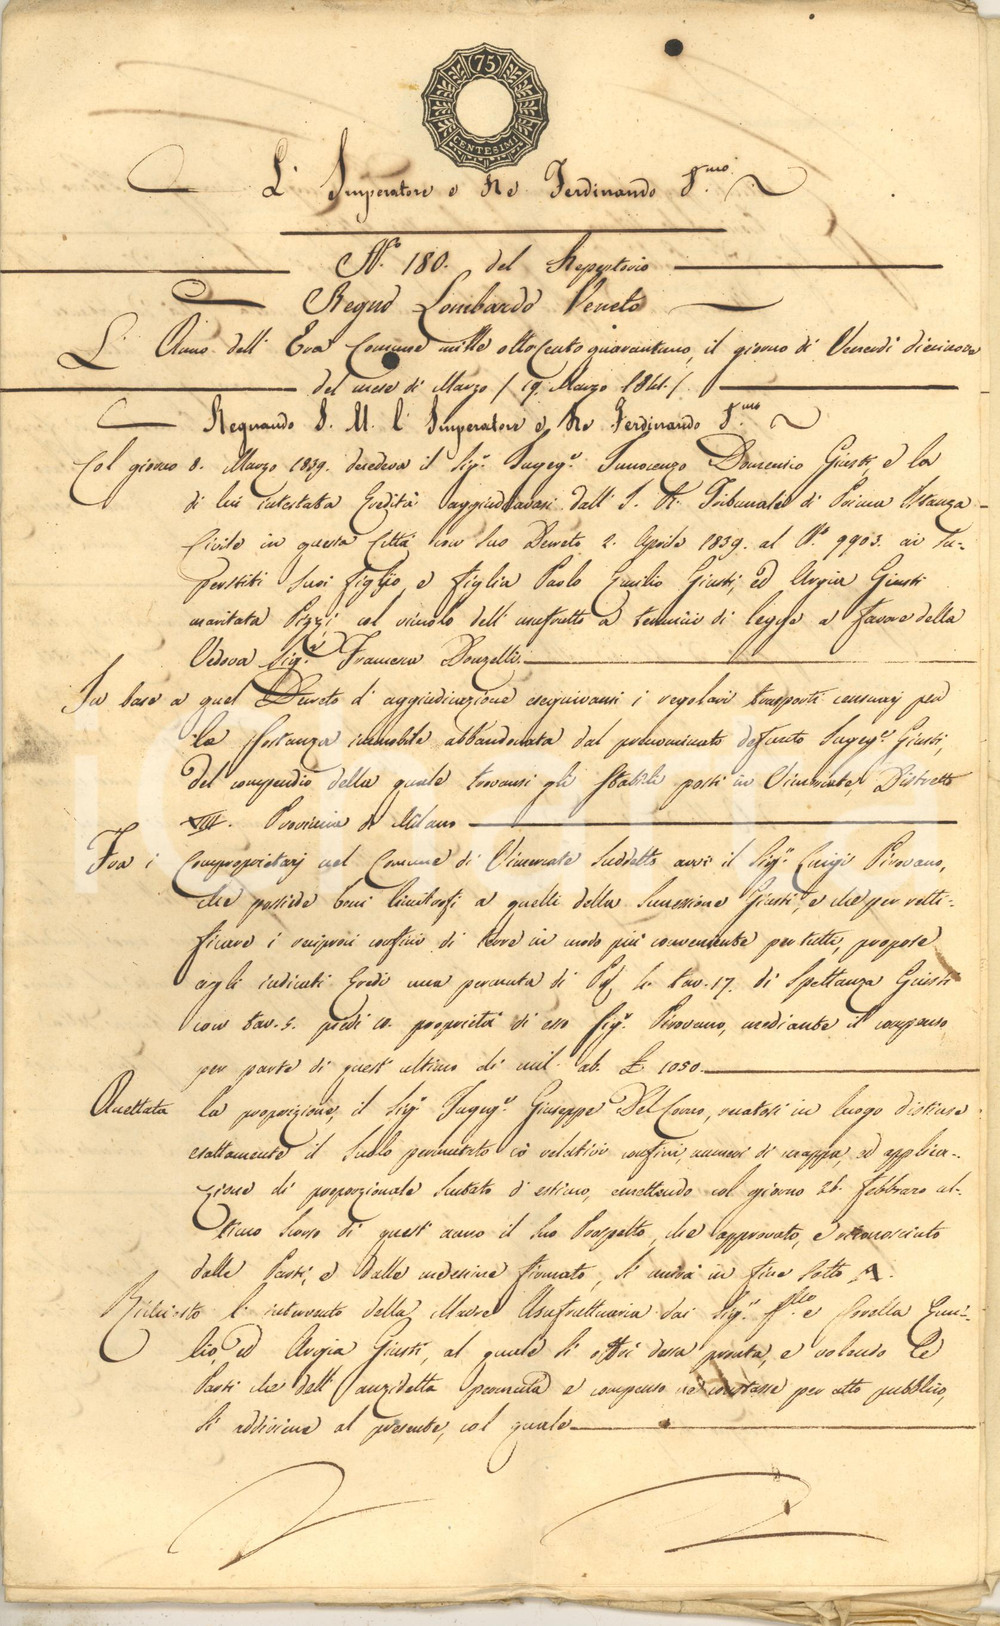 75
CENTESIMI
L' Imperatore e Re Ferdinando I.mo
N.o 180. del Repertorio
Regno Lombardo Veneto
L' Anno dell' Era Comune mille ottocento quarantuno, il giorno di Venerdi diecinove
del mese di Marzo / 19. Marzo 1841. /
Regnando S. M. l' Imperatore e Re Ferdinando I.mo
Col giorno 8. Marzo 1839. decedeva il Sig.r Ingeg.r Innocenzo Domenico Giusti, e la
di lui intestata Eredità aggiudicavasi dall' I. R. Tribunale di Prima Istanza
Civile in questa Città con suo Decreto 2. Aprile 1839. al N.o 9903. ai Su-
perstiti suoi figlio, e figlia Paolo Emilio Giusti, ed Argia Giusti
maritata Pizzi col vincolo dell' usufrutto a termini di legge a favore della
Vedova Sig.a Francesca Donzelli.
In base a quel Decreto d' aggiudicazione eseguivansi i regolari trasporti censuarj per
la sostanza immobile abbandonata dal prenominato defunto Ingeg.r Giusti,
del compendio della quale trovansi gli stabili posti in Vimercate, Distretto
VIII. Provincia di Milano
Fra i Comproprietarj nel Comune di Vimercate suddetto avvi il Sig.r Luigi Pirovano,
che possiede beni limitrofi a quelli della Successione Giusti, e che per retti-
ficare i reciproci confini di terre in modo più conveniente per tutti, propose
agli indicati Eredi una permuta di P. 4. tav. 17. di Spettanza Giusti
con tav. 5. piedi 10. proprietà di esso Sig.r Pirovano, mediante il compenso
per parte di quest' ultimo di mil. ab. £ 1050.
Accettata la proposizione, il Sig.r Ingeg.r Giuseppe Del Corno, recatosi in luogo distinse
esattamente il suolo permutato coi relativi confini, numeri di mappa, ed applica-
zione di proporzionale scutato d' estimo, emettendo col giorno 26. febbraro ul-
timo scorso di quest' anno il suo Prospetto, che approvato, e riconosciuto
dalle Parti, e dalle medesime firmato, si unirà in fine sotto A.
Richiesto l' intervento della Madre Usufruttuaria dai Sig.ri f.llo e sorella Emi-
lio, ed Argia Giusti, al quale si offrì dessa pronta, e volendo le
Parti che dell' anzidetta permuta e compenso ne constasse per atto pubblico,
si addiviene al presente, col quale